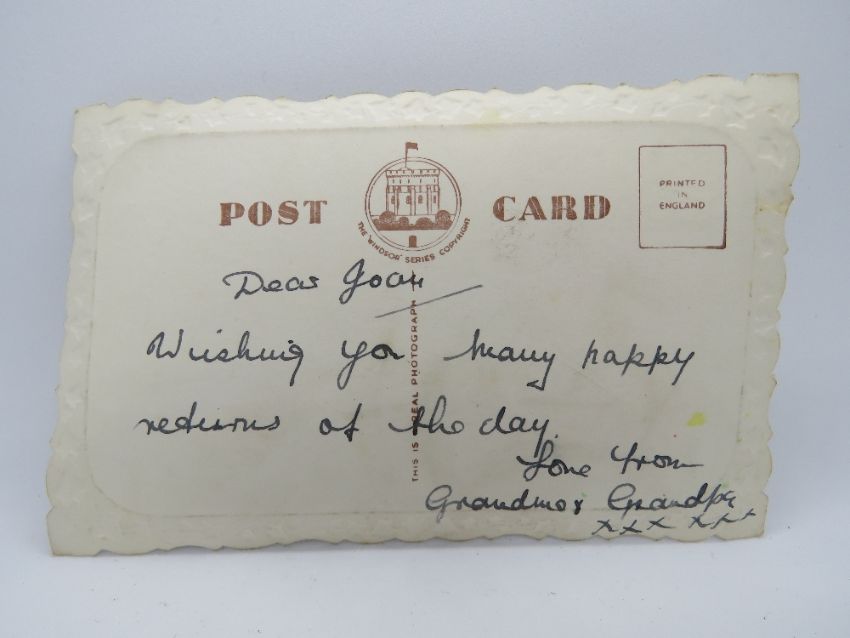 POST CARD
THE 'WINDSOR' SERIES COPYRIGHT
PRINTED
IN
ENGLAND
THIS IS A REAL PHOTOGRAPH
Dear Joan
Wishing you many happy
returns of the day.
Love from
Grandma & Grandpa
xxx xxx